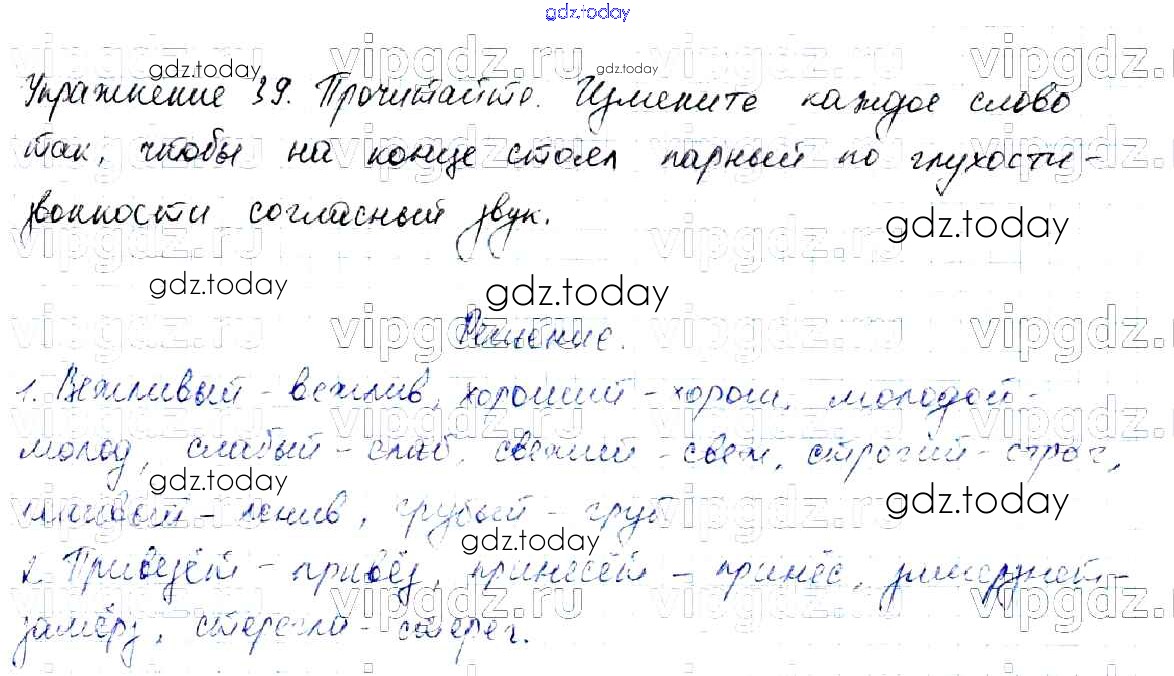 gdz.today
Упражнение 39. Прочитайте. Измените каждое слово
так, чтобы на конце стоял парный по глухости-
звонкости согласный звук.
Решение.
1. Вежливый - вежлив, хороший - хорош, молодой -
молод, слабый - слаб, свежий - свеж, строгий - строг,
ленивый - ленив, грубый - груб
2. Привезёт - привёз, принесёт - принёс, замёрзнет -
замёрз, стерегла - стерег.